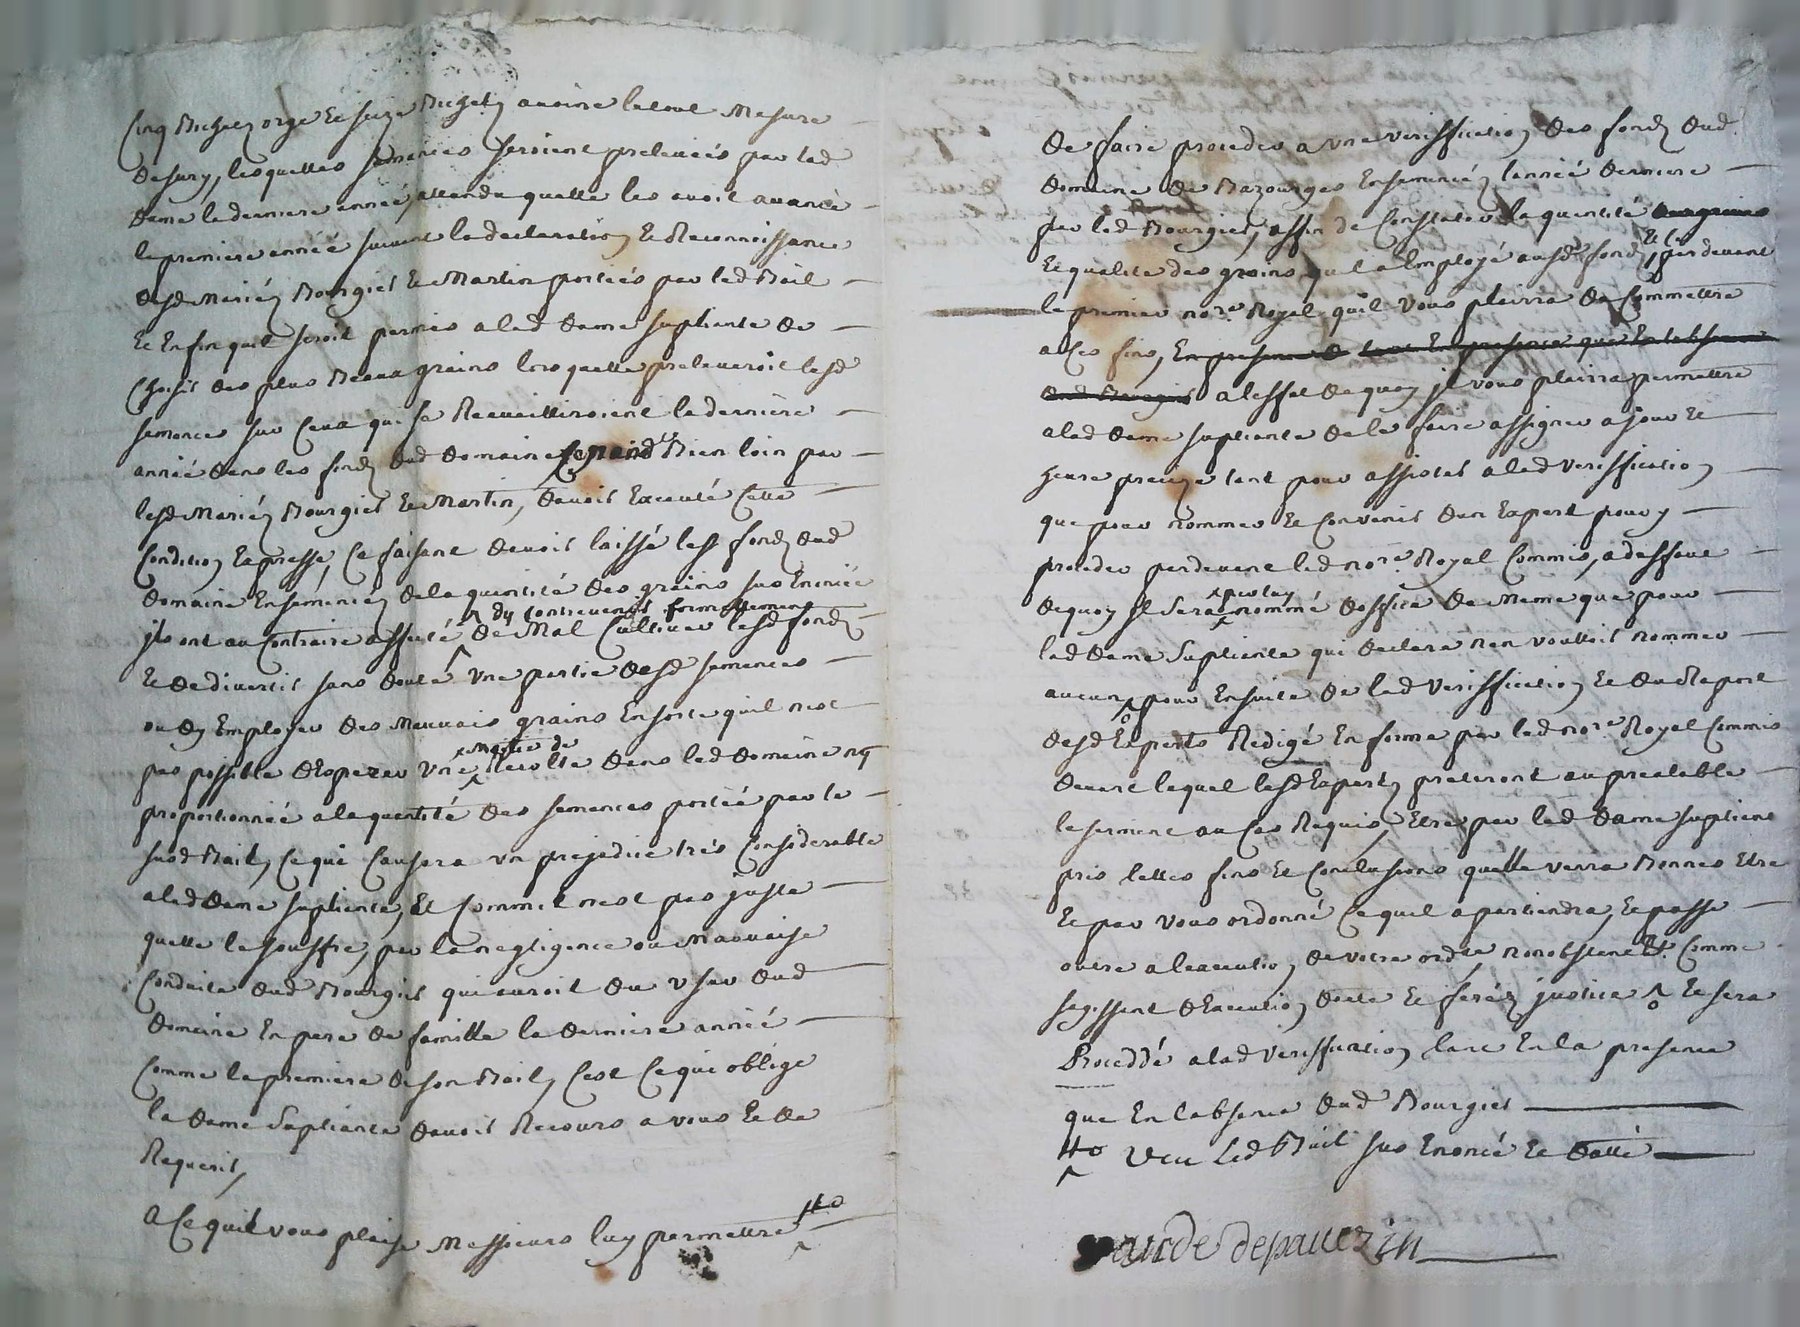 Cinq Bichetz orge Et seize Bichetz avoine le tout Mesure
de Sury, lesquelles semences seroient prelevées par lad
dame la derniere année, attendu quelle les avoit avancé
la premiere année suivant la declaration Et Reconnoissance
desd Mariéz Bourgiet Et Martin portées par led Bail
Et Enfin quil seroit permis a lad dame supliante de
Choisir des plus Beaux grains lors quelle preleveroit lesd
semences sur Ceux qui se Recueilliroient la derniere
année dans les fondz dud domaine Bien loin par
lesd Mariéz Bourgiet Et Martin, davoir Executé Cette
Condition Expresse, Ce faisant davoir laissé lesd fondz dud
domaine Ensemencéz de la quantité des grains sus Enoncée
jls ont au Contraire affecté dy contrevenir formellement
de Mal Cultiver lesd fondz
Et de divertir sans doute Une partie desd semences
ou dy Employer des Mauvais grains En sorte quil nest
pas possible dEsperer Une Recolte dans led domaine
proportionnée a la quantité des semences portée par le
susd Bail, Ce qui Causera un prejudice trés Considerable
a lad dame supliante, Et Comme il nest pas juste
quelle le souffre, par la negligence ou Mauvaise
Conduite dud Bourgiet qui auroit du User dud
domaine En pere de famille la derniere année
Comme la premiere de son Bail, Cest Ce qui oblige
la dame Supliante davoir Recours a vous Et de
Requerir,
A Ce quil vous plaise Messieurs luy permettre
de faire proceder a une veriffication des fondz dud
domaine de Bazourges Ensemencéz lannée derniere
par led Bourgiet, affin de Constater la quantité
Et qualité des grains quil a Employé ausd fondz Et Ce pardevant
le premier nore. Royal quil vous plairra de Commettre
a Ces fins, a leffet de quoy jl vous plairra permettre
a lad dame supliante de le faire assigner a jour Et
heure precize tant pour assister a lad veriffication
que pour nommer Et Convenir dun Expert pour y
proceder pardevant led nore. Royal Commis, a deffaut
de quoy jl sera par luy nommé doffice de Meme que pour
lad dame Supliante qui declare nen voulloir nommer
aucun pour Ensuite de lad Veriffication Et du Raport
desd Experts Redigé En forme par led nore. Royal Commis
devant lequel lesd Expertz preteront au prealable
le serment au Cas Requis, Etre par lad dame supliante
pris telles fins Et Conclusions quelle verra Bonnes Etre
Et par vous ordonné Ce quil apartiendra, Et passé
outre a lexecution de votre ordre, nonobstant &a. Comme
sagissant dExecution dacte Et feréz justice Et sera
Proceddé a lad Veriffication tant En la presence
que En labsence dud Bourgiet
Veu led Bail sus Enoncé Et datté
depauezin